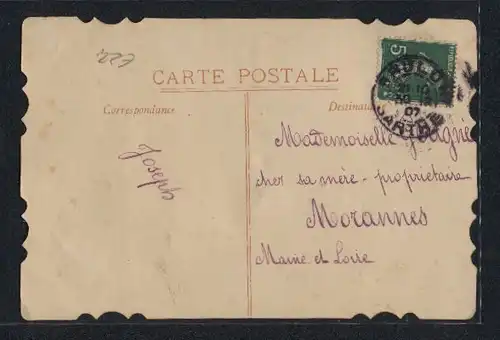 CARTE POSTALE
Correspondance
Destinataire
5
07
SARTHE
Joseph
Mademoiselle
chez sa mère - propriétaire
Morannes
Maine et Loire